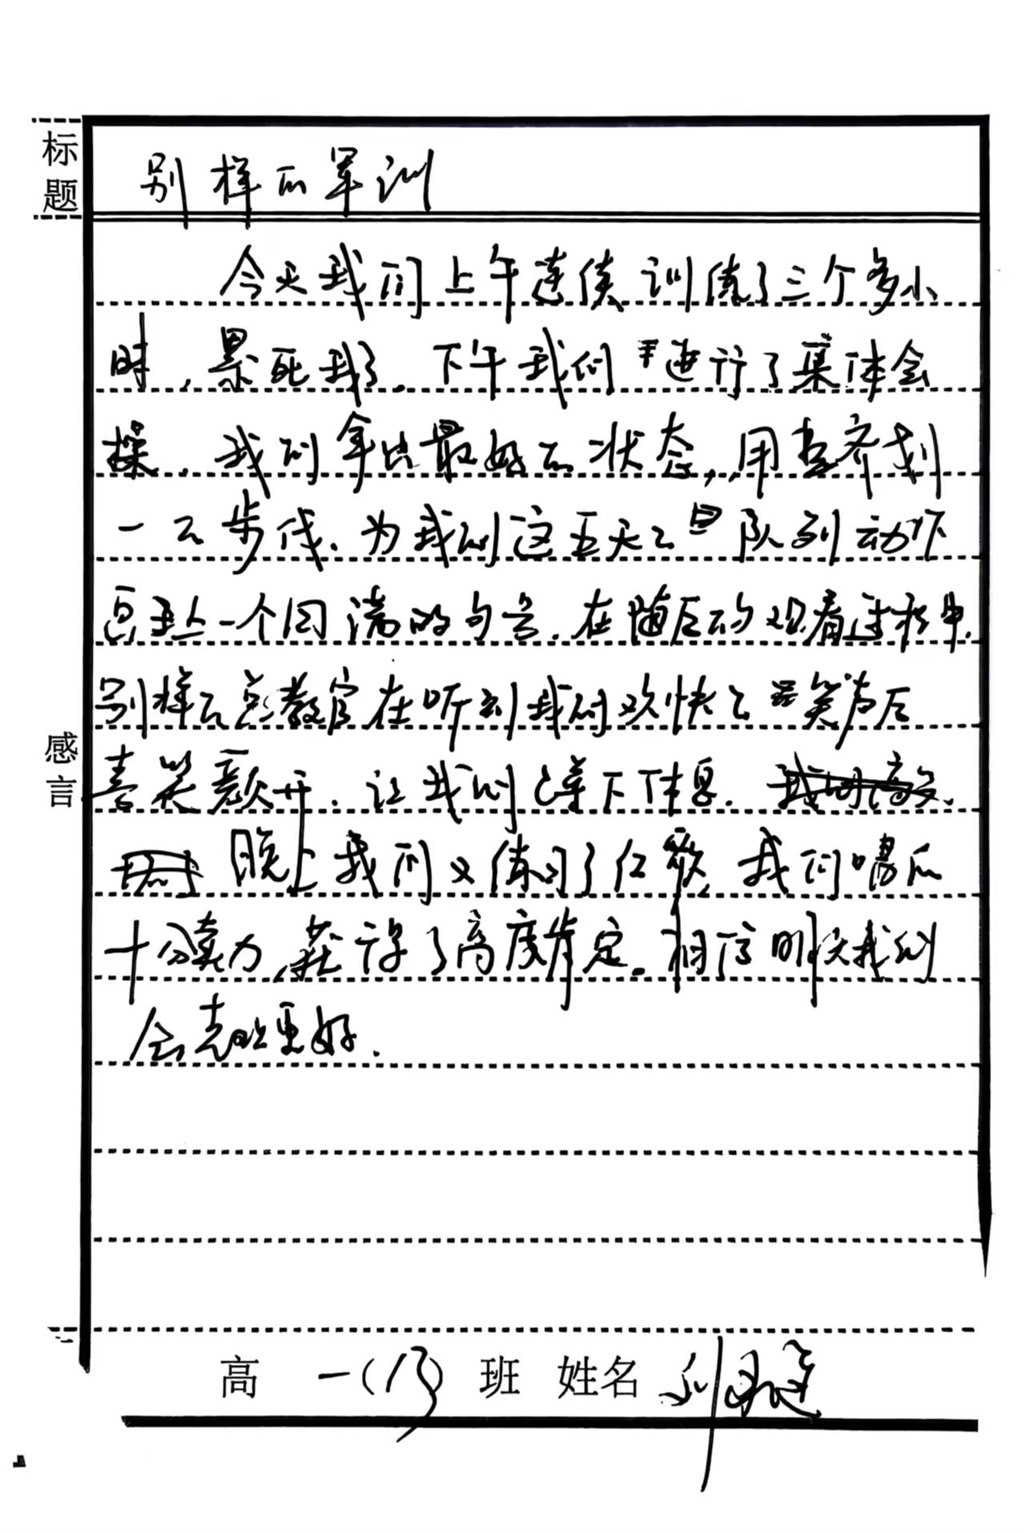 标题
别样的军训
今天我们上午连续训练了三个多小
时，累死我了。下午我们进行了集体会
操，我们拿出最好的状态，用整齐划
一的步伐，为我们这五天的队列动作
画上一个圆满的句号。在随后的观看过程中，
别样的总教官在听到我们欢快的笑声后
喜笑颜开，让我们坐下休息。
晚上我们又练习了红歌，我们唱的
十分卖力，获得了高度肯定。相信明天我们
会表现更好。
感言
高一(13)班 姓名 刘